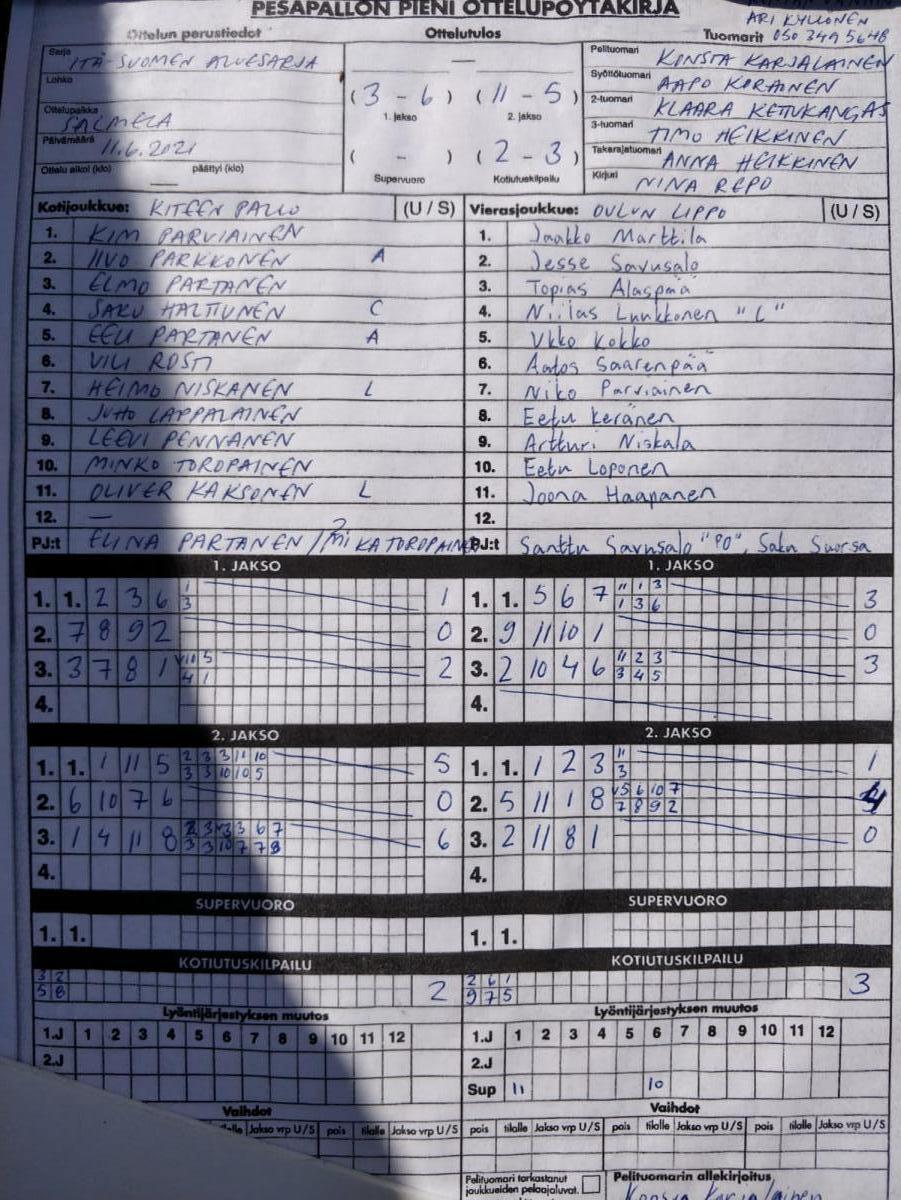 PESÄPALLON PIENI OTTELUPÖYTÄKIRJA
ARI KYLLÖNEN
Ottelun perustiedot Ottelutulos Tuomarit 050 349 5648
Sarja ITÄ-SUOMEN ALUESARJA — Pelituomari KONSTA KARJALAINEN
Lohko (3 - 6) (11 - 5) Syöttötuomari AAPO KORAINEN
Ottelupaikka SALMELA 1. jakso 2. jakso 2-tuomari KLAARA KETUKANGAS
Päivämäärä 11.6.2021 3-tuomari TIMO HEIKKINEN
Ottelu alkoi (klo) — päättyi (klo) ( - ) (2 - 3) Takarajatuomari ANNA HEIKKINEN
Supervuoro Kotiutuskilpailu Kirjuri NINA REPO
Kotijoukkue: KITEEN PALLO (U / S) Vierasjoukkue: OULUN LIPPO (U / S)
1. KIM PARVIAINEN 1. Jaakko Marttila
2. IIVO PARKKONEN A 2. Jesse Savusalo
3. ELMO PARTANEN 3. Topias Alaspää
4. SAKU HALTTUNEN C 4. Niilas Luukkonen "L"
5. EELI PARTANEN A 5. Ukko Kokko
6. VILI ROSTI 6. Aatos Saarenpää
7. HEIMO NISKANEN L 7. Niko Parviainen
8. JUHO LAPPALAINEN 8. Eetu Keränen
9. LEEVI PENNANEN 9. Artturi Niskala
10. MINKO TOROPAINEN 10. Eetu Loponen
11. OLIVER KAKSONEN L 11. Joona Haapanen
12. — 12.
PJ:t ELINA PARTANEN / MIKA TOROPAINEN PJ:t Santtu Savusalo "PO", Saku Suorsa
1. JAKSO 1. JAKSO
1. 1. 2 3 6 1 1 1. 1. 5 6 7 11 1 3 3
3 1 3 6
2. 7 8 9 2 0 2. 9 11 10 1 0
3. 3 7 8 1 5 2 3. 2 10 4 6 11 2 3 3
4 1 3 4 5
4. 4.
2. JAKSO 2. JAKSO
1. 1. 1 11 5 2 3 3 11 10 5 1. 1. 1 2 3 11 1
3 3 10 10 5 3
2. 6 10 7 6 0 2. 5 11 1 8 5 6 10 7 4
7 8 9 2
3. 1 4 11 8 2 3 3 6 7 6 3. 2 11 8 1 0
3 3 10 7 7 8
4. 4.
SUPERVUORO SUPERVUORO
1. 1. 1. 1.
KOTIUTUSKILPAILU KOTIUTUSKILPAILU
3 2 2 2 6 1 3
5 8 9 7 5
Lyöntijärjestyksen muutos Lyöntijärjestyksen muutos
1.J 1 2 3 4 5 6 7 8 9 10 11 12 1.J 1 2 3 4 5 6 7 8 9 10 11 12
2.J 2.J
Sup 11 10
Vaihdot Vaihdot
tilalle Jakso vrp U/S pois tilalle Jakso vrp U/S pois tilalle Jakso vrp U/S pois tilalle Jakso vrp U/S pois tilalle Jakso vrp U/S
Pelituomari tarkastanut Pelituomarin allekirjoitus
joukkueiden pelaajaluvat. Konsta Karjalainen